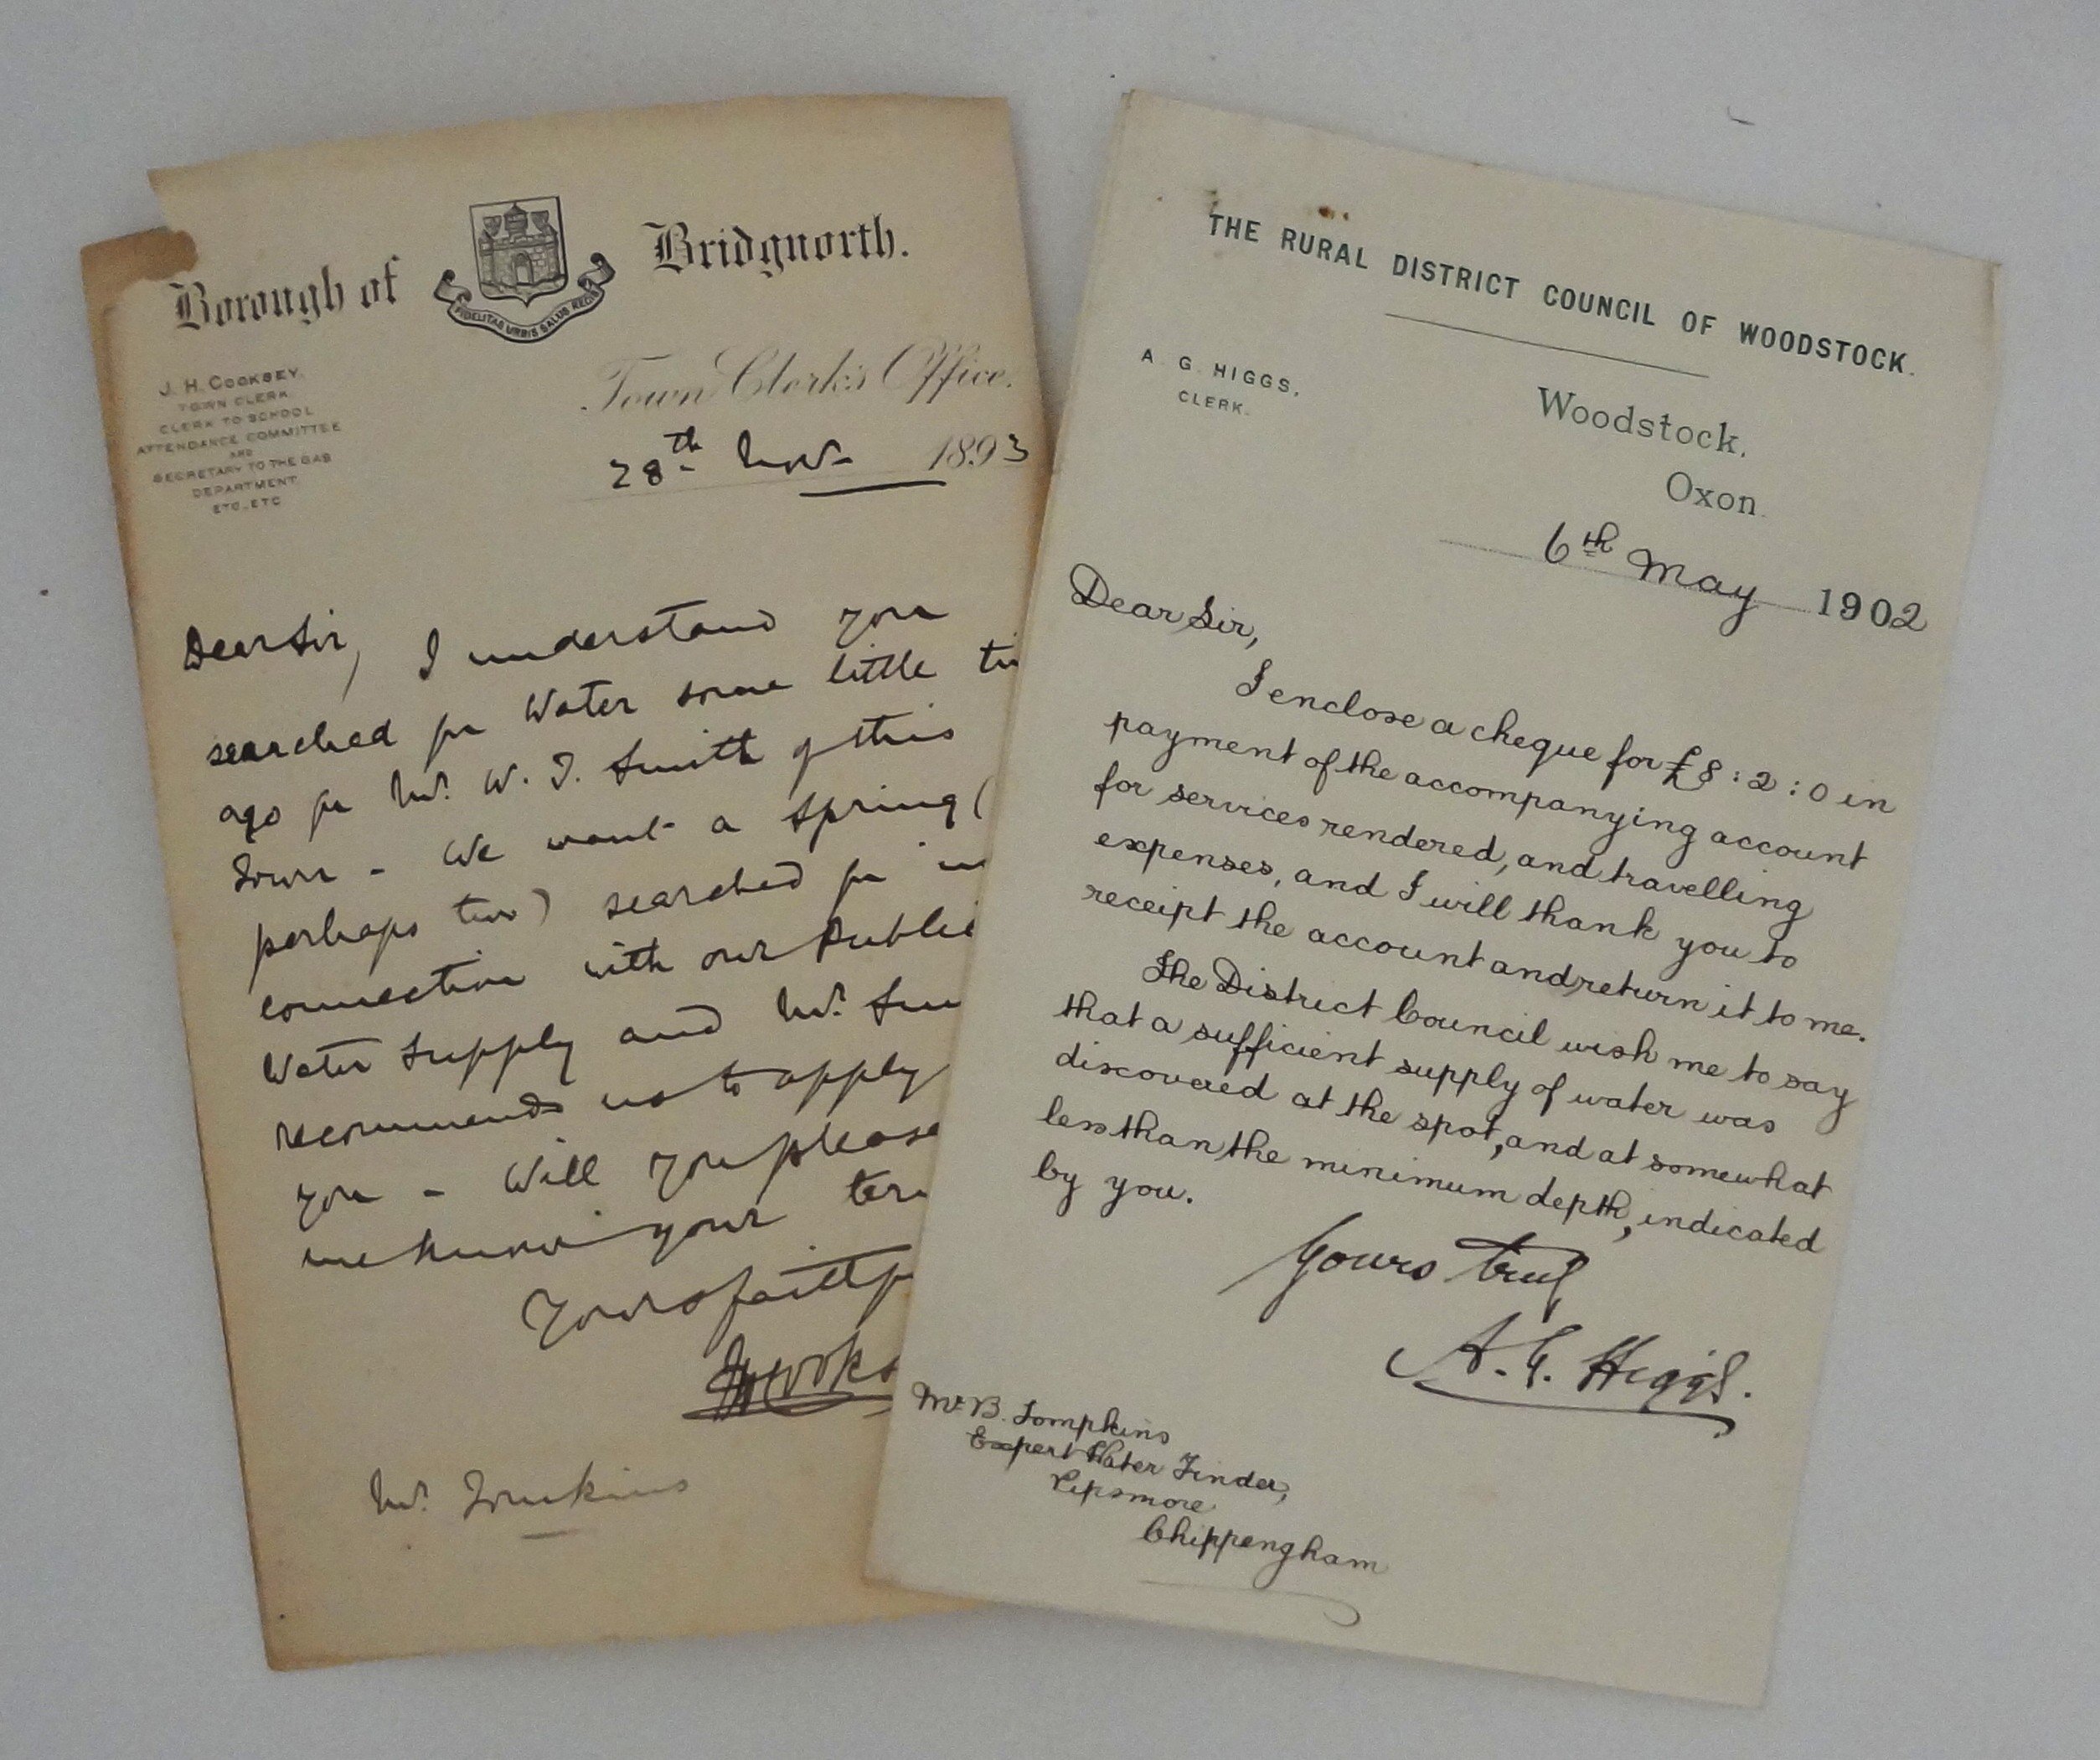 Borough of Bridgnorth.
FIDELITAS URBIS SALUS REGIS
J. H. COOKSEY,
TOWN CLERK
CLERK TO SCHOOL
ATTENDANCE COMMITTEE
AND
SECRETARY TO THE GAS
DEPARTMENT
ETC., ETC
Town Clerk's Office.
28th Nov. 1893
Dear Sir, I understand you
searched for Water some little
ago for Mr. W. J. Smith of this
Town - We want a spring (
perhaps two) searched for in
connection with our Public
Water Supply and Mr.
recommends us to apply
you - Will you please
me know your
Yours
Mr. Tomkins
THE RURAL DISTRICT COUNCIL OF WOODSTOCK.
A. G. HIGGS,
CLERK.
Woodstock.
Oxon.
6th May 1902
Dear Sir,
I enclose a cheque for £8:2:0 in
payment of the accompanying account
for services rendered, and travelling
expenses, and I will thank you to
receipt the account and return it to me.
The District Council wish me to say
that a sufficient supply of water was
discovered at the spot, and at somewhat
less than the minimum depth, indicated
by you.
Yours truly
A. G. Higgs.
Mr. B. Tompkins
Expert Water Finder,
Pipsmore
Chippengham